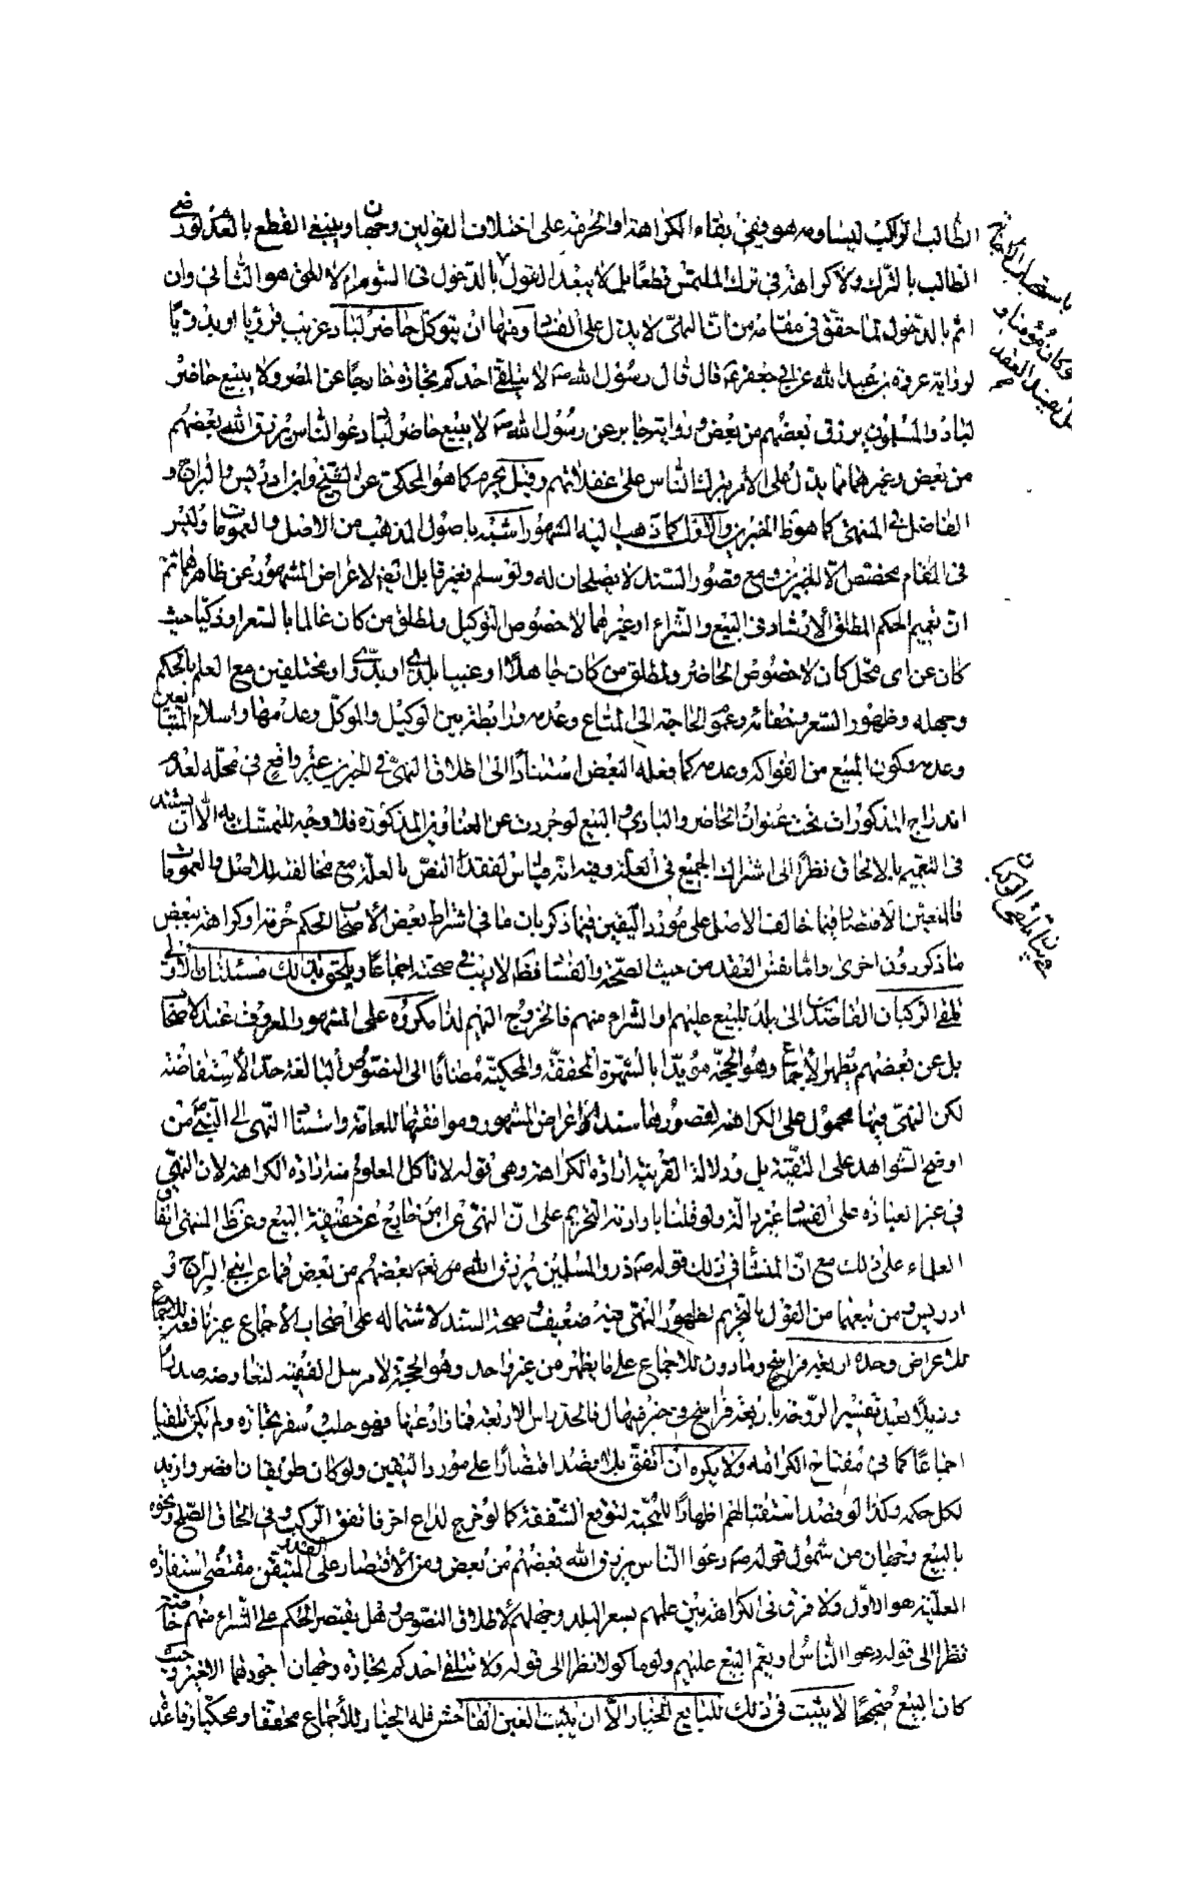 الطالب الترك ليساومه هو وفى بقاء الكراهة او الحرمة على اختلاف القولين وجهان وينبغى القطع بالعدم لو رضى
الطالب بالترك ولا كراهة فى ترك الملتمس قطعا بل لا يبعد القول بالدخول فى السوم ام لا لان النهى هو الثانى وان
اثم بالدخول لما حقق فى مقامه من ان النهى لا يدل على الفساد ومنها ان يتوكل حاضر لباد غريب قرويا او بدويا
لرواية عروة بن عبد الله عن ابى جعفر ع قال قال رسول الله ص لا يتلقى احدكم تجارة خارجا عن المصر ولا يبيع حاضر
لباد والمسلمون يرزق بعضهم من بعض ورواية جابر عن رسول الله ص لا يبيع حاضر لباد دعوا الناس يرزق الله بعضهم
من بعض وغيرهما مما يدل على الامر بترك الناس على غفلاتهم وقيل يحرم كما هو المحكى عن الشيخ وابن ادريس والبراج و
الفاضل فى المنتهى كما هو ظ الخبرين والاول كما ذهب اليه المشهور اشبه باصول المذهب من الاصل والعمومات وليس
فى المقام مخصص الا الخبرين ومع قصور السند لا يصلحان له ولو سلم فغير قابل ايضا لاعراض المشهور عن ظاهرهما ثم
ان تعميم الحكم لمطلق الارشاد فى البيع والشراء او غيرهما لا خصوص التوكيل ولمطلق من كان عالما بالسعر وذكيا حيث
كان عن اى محل كان لا خصوص الحاضر ولمطلق من كان جاهلا او غبيا بلدى او بدوى او مختلفين مع العلم بالحكم
وجهله وظهور السعر وخفائه وعموم الحاجة الى المتاع وعدمه ورابطة بين الوكيل والموكل وعدمها واسلام المتبايعين
وعدمه وكون المبيع من الفواكه وعدمه كما فعله البعض استنادا الى اطلاق النهى فى الخبرين غير واقع فى محله لعدم
اندراج المذكورات تحت عنوان الحاضر والبادى والبيع لو جردت عن العناوين المذكورة فلا وجه للتمسك به الا ان يستند
فى التعميم بالالحاق نظرا الى اشتراك الجميع فى العلة وفيه انه قياس لفقد النص بالعلة مع مخالفته للاصل والعمومات
فالمتعين الاقتصار فيما خالف الاصل على مورد اليقين فيما ذكر بان ما فى اشتراط بعض الاصحاب الحكم حرمة او كراهة ببعض
ما ذكر دون اخرى واما نفس العقد من حيث الصحة والفساد فظ لا ريب فى صحته اجماعا ويلحق بذلك مسئلتان الاولى
تلقى الركبان القاصدين الى بلد للبيع عليهم او الشراء منهم فالخروج اليهم لذا مكروه على المشهور المعروف عند الاصحاب
بل عن بعضهم يظهر الاجماع وهو الحجة مؤيدا بالشهرة المحققة والمحكية مضافا الى النصوص البالغة حد الاستفاضة
لكن النهى فيها محمول على الكراهة لقصورها سندا لاعراض المشهور وموافقتها للعامة واستناد النهى الى النبى ص من
اوضح الشواهد على التقية بل ودلالة القرينة ارادة الكراهة وهى قوله لا تاكل المعلوم منه ارادة الكراهة لان النهى
فى غير العبادة على الفساد غير دال ولو قلنا بارادة التحريم على ان النهى عن امر خارج عن حقيقة البيع وعن ظ المنتهى اتفاق
العلماء على ذلك مع ان المنشأ فى ذلك قوله ص ذروا المسلمين يرزق الله بعضهم من بعض فما عن ابنى البراج و
ادريس ومن تبعهما من القول بالتحريم لظهور النهى فيه ضعيف وصحة السند لاشتماله على اصحاب الاجماع غير نافعة للاجماع
للاعراض وحده اربعة فراسخ وما دون للاجماع على ما يظهر من غير واحد وهو الحجة لا مرسل الفقيه لتعارضه صدرا
وذيلا وبعيد تفسير الروحة باربعة فراسخ وفى خبر منهال فالحد راس الاربعة فما زاد عنها فهو جلب وسفر تجارة ولم يكن تلقيا
اجماعا كما فى مفتاح الكرامة ولا يكره ان اتفق بلا قصد اقتصارا على مورد اليقين ولو كان طريقان مصر واريد
لكل حكمه وكذا لو قصد استقبالهم اظهارا للمحبة لتوقع الشفقة كما لو خرج لداع اخر فاتفق الركب وفى الحاق الصلح ونحوه
بالبيع وجهان من شمول قوله ص دعوا الناس يرزق الله بعضهم من بعض ومن الاقتصار على القدر المتيقن مقتضى استفادة
العلية هو الاول ولا فرق فى الكراهة بين علمهم بسعر البلد وجهلهم لاطلاق النصوص وهل يقتصر الحكم على الشراء منهم خاصة
نظرا الى قوله دعوا الناس او يعم البيع عليهم ولو ماكولا نظرا الى قوله ولا يتلقى احدكم تجارة وجهان اجودهما الاخير وحيث
كان البيع صحيحا لا يثبت فى ذلك للبايع الخيار الا ان يثبت الغبن الفاحش فله الخيار للاجماع محققا ومحكيا وقاعدة